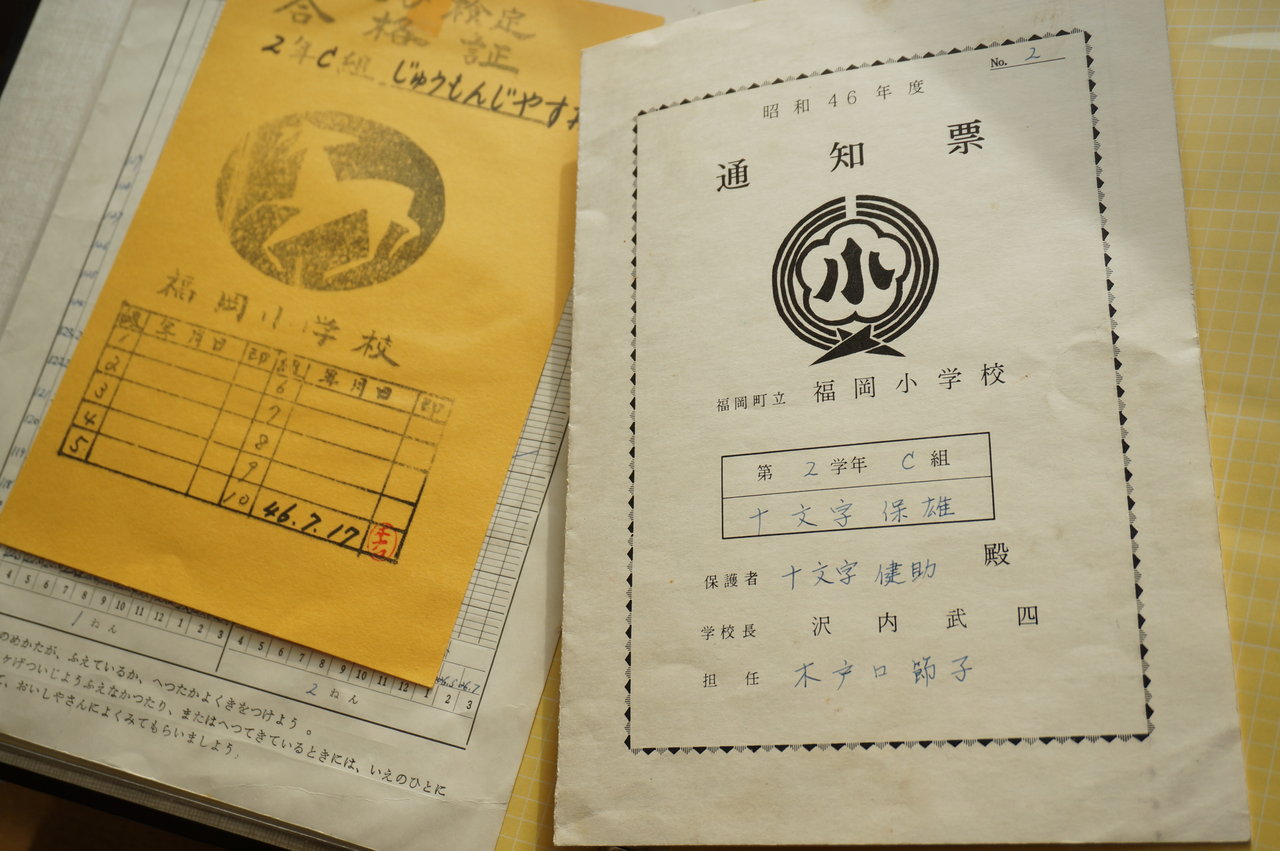 検定
合格証
2年C組 じゅうもんじやすお
福岡小学校
級 年月日 印 級 年月日 印
1 6
2 7
3 8
4 9
5 10 46.7.17
4 5 6 7 8 9 10 11 12 1 2 3 4 5 6 7 8 9 10 11 12 1 2 3
1ねん 2ねん
のめかたが、ふえているか、へつたかよくきをつけよう。
げついじようふえなかつたり、またはへつてきているときには、いえのひとに
、おいしやさんによくみてもらいましよう。
No. 2
昭和46年度
通知票
小
福岡町立 福岡小学校
第2学年 C組
十文字 保雄
殿
保護者 十文字 健助
学校長 沢内武四
担任 木戸口節子